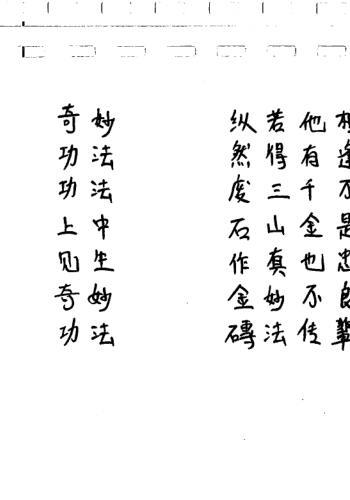 相逢不是忠良輩
他有千金也不传
若得三山真妙法
纵然废石作金磚
妙法法中生妙法
奇功功上见奇功